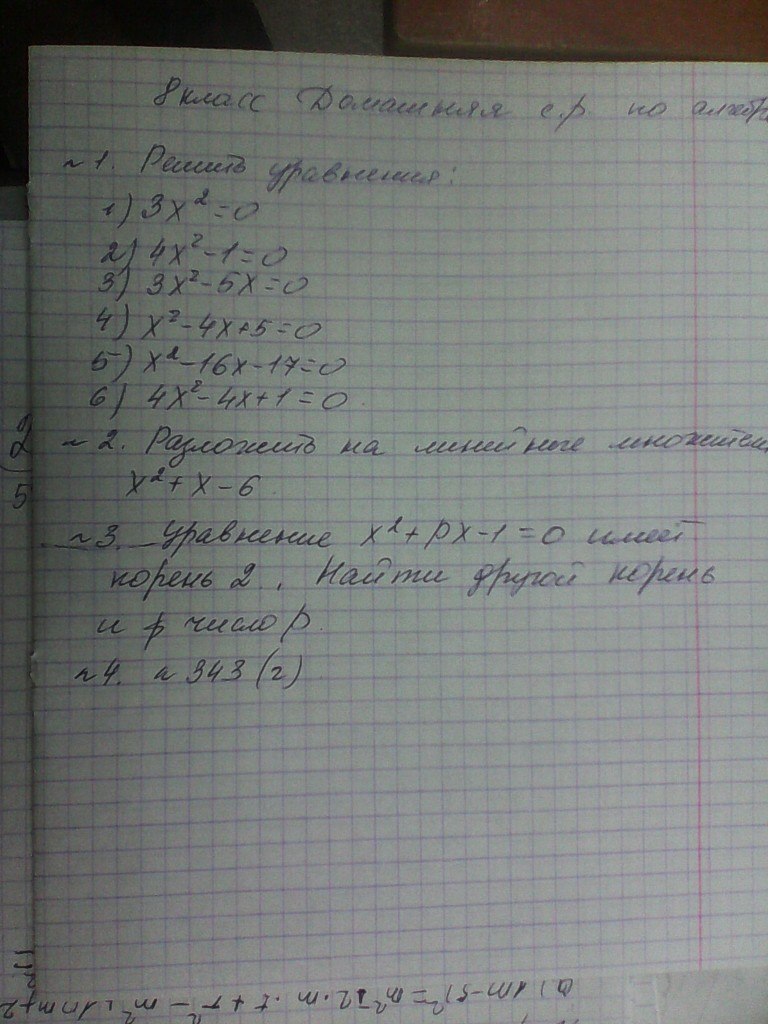 8 класс Домашняя с.р. по алгебр
~ 1. Решить уравнения:
1) 3x² = 0
2) 4x² - 1 = 0
3) 3x² - 5x = 0
4) x² - 4x + 5 = 0
5) x² - 16x - 17 = 0
6) 4x² - 4x + 1 = 0.
~ 2. Разложить на линейные множител
x² + x - 6
~ 3. Уравнение x² + px - 1 = 0 имеет
корень 2. Найти другой корень
и число p.
~ 4. ~ 343 (г)
2
5